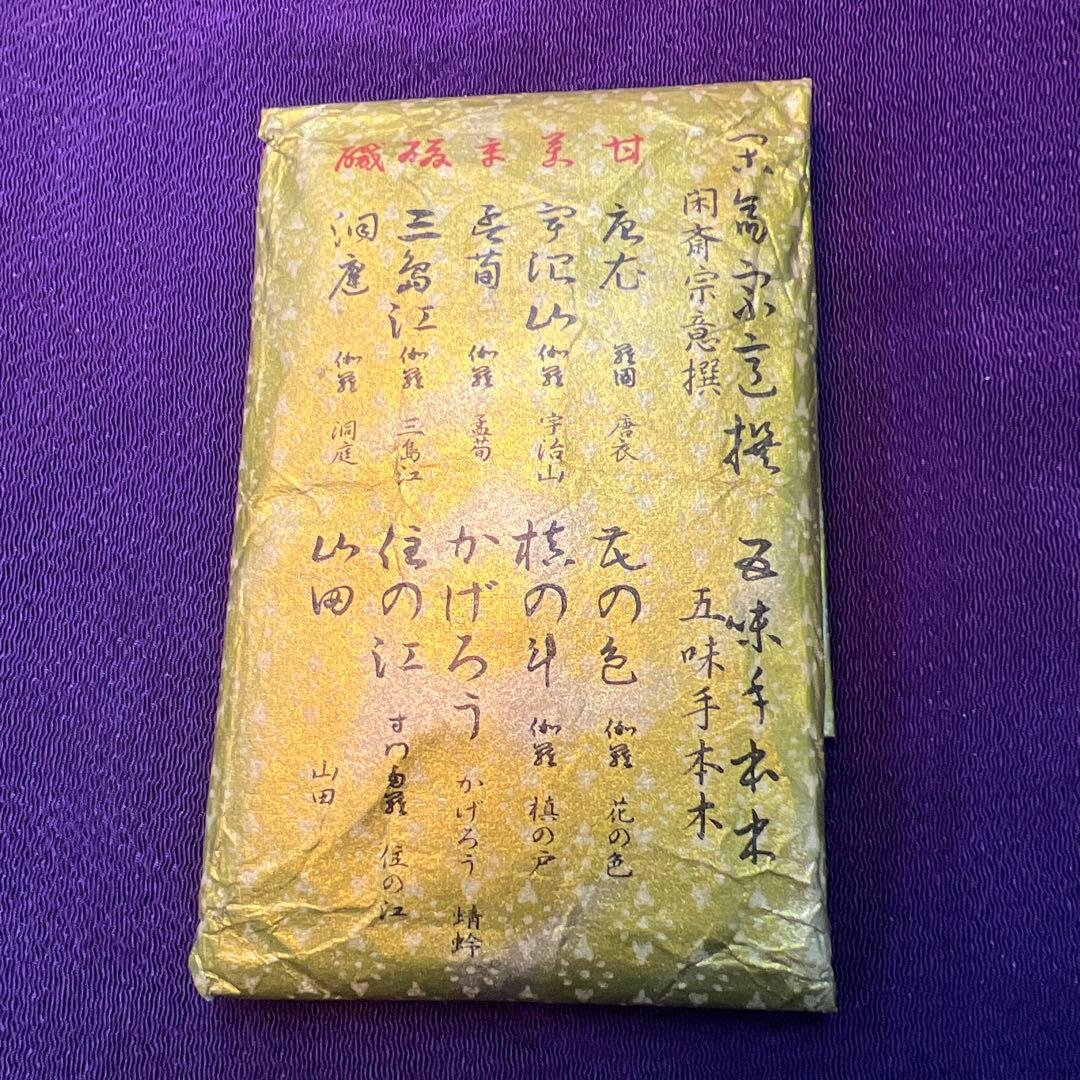 閑斎宗意撰 五味手本木
閑斎宗意撰 五味手本木
甘 苦 辛 酸 鹹
唐衣 羅国 唐衣 花の色 伽羅 花の色
宇治山 伽羅 宇治山 槙の戸 伽羅 槙の戸
孟荀 伽羅 孟荀 かげろう かげろう 蜻蛉
三島江 伽羅 三島江 住の江 寸門多羅 住の江
洞庭 伽羅 洞庭 山田 山田